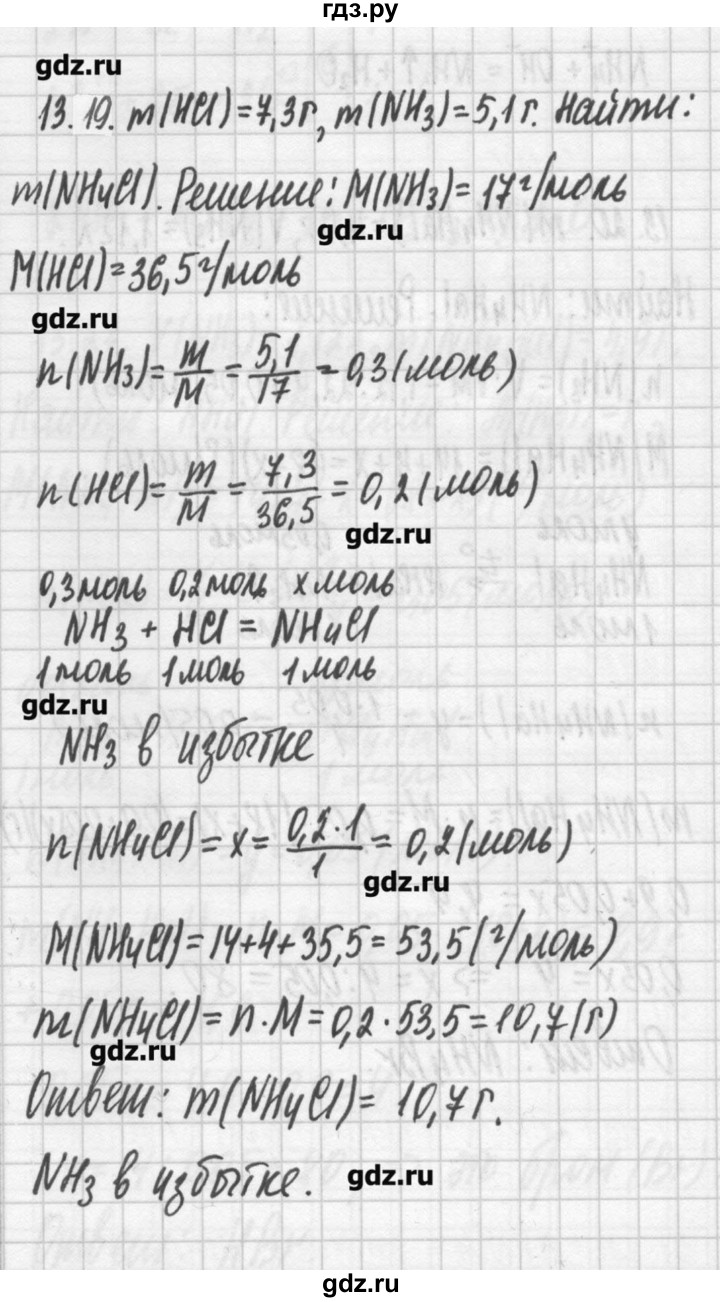 гдз.ру
gdz.ru
13.19. m(HCl)=7,3г, m(NH3)=5,1г. Найти:
m(NH4Cl). Решение: M(NH3)=17 г/моль
gdz.ru
M(HCl)=36,5 г/моль
gdz.ru
n(NH3)= m/M = 5,1/17 = 0,3(моль)
n(HCl)= m/M = 7,3/36,5 = 0,2(моль)
gdz.ru
0,3моль 0,2моль x моль
NH3 + HCl = NH4Cl
1моль 1моль 1моль
gdz.ru
NH3 в избытке
n(NH4Cl)=x= 0,2·1/1 = 0,2(моль)
gdz.ru
M(NH4Cl)=14+4+35,5=53,5(г/моль)
m(NH4Cl)=n·M=0,2·53,5=10,7(г)
gdz.ru
Ответ: m(NH4Cl)=10,7г.
NH3 в избытке.
gdz.ru
gdz.ru